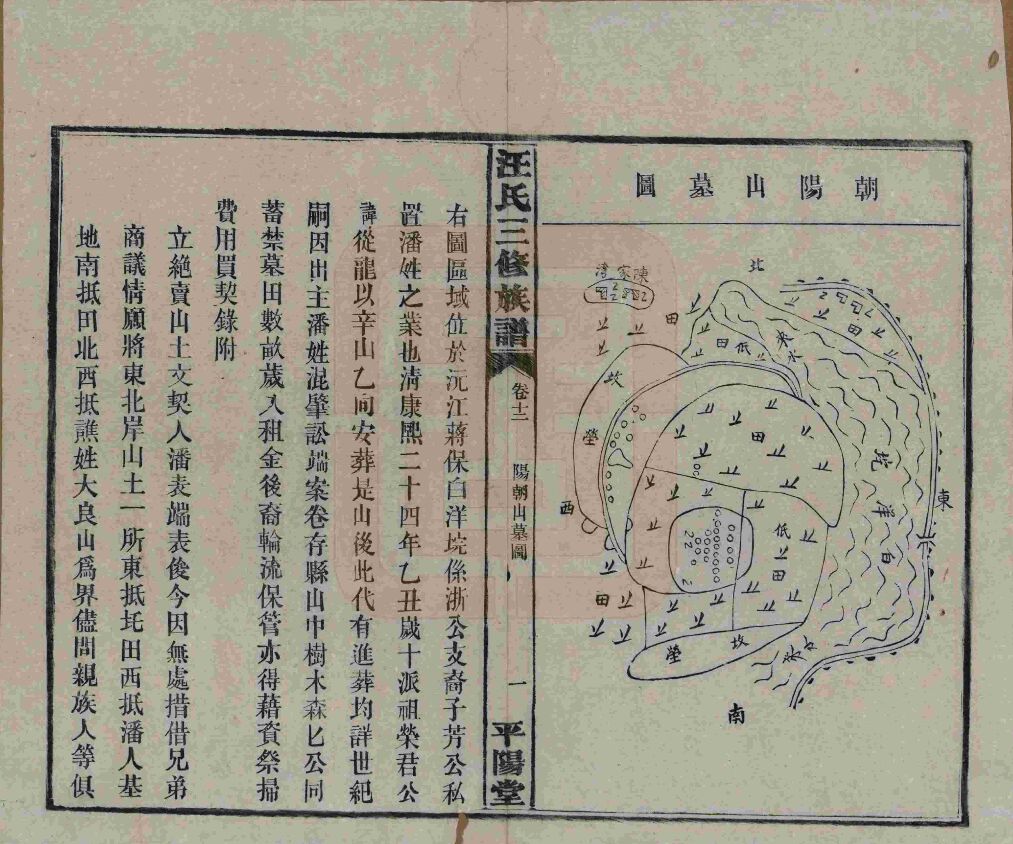 朝陽山墓圖
北
陳家灣
田
田
來水
低田
坎
塋
田
西
東
白洋垸
低田
田
坎
塋
去水
南
汪氏三修族譜
卷十二
陽朝山墓圖
一
平陽堂
右圖區域位於沅江蔣保白洋垸係浙公支裔子芳公私
置潘姓之業也清康熙二十四年乙丑歲十派祖榮君公
諱從龍以辛山乙向安葬是山後此代有進葬均詳世紀
嗣因出主潘姓混肇訟端案卷存縣山中樹木森匕公同
蓄禁墓田數畝歲入租金後裔輪流保管亦得藉資祭掃
費用買契錄附
立絶賣山土文契人潘表端表俊今因無處措借兄弟
商議情願將東北岸山土一所東抵圫田西抵潘人基
地南抵田北西抵譙姓大良山爲界儘問親族人等俱